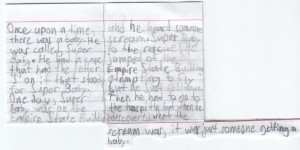 Once upon a time,
there was a baby. He
was called Super
Baby. He had a cape
that had the letter
S on it that stood
for Super Baby.
One day, Super
Baby was on the
Empire State Building
and he heard someone
scream. Super Baby
to the rescue! He
jumped of the
Empire State Building
attempting to fly
but he just fell down.
Then he had to go to
the hospital but when he
discovered what the
scream was, it was just someone getting a
baby.